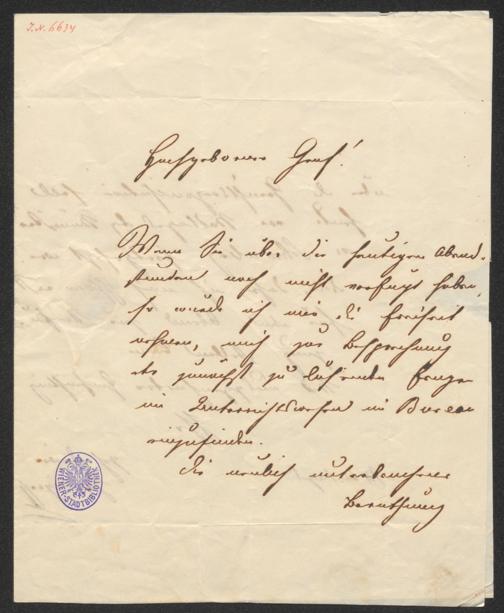 J.N. 6634
Hochgeborner Graf!
Wenn Sie über die heutigen Abend-
stunden noch nicht verfügt haben,
so würde ich mir die Freiheit
nehmen, mich zur Besprechung
der zunächst zu lösenden Fragen
im Unterrichtswesen im Bureau
einzufinden.
Die neulich unterbrochene
Berathung
WIENER STADTBIBLIOTHEK